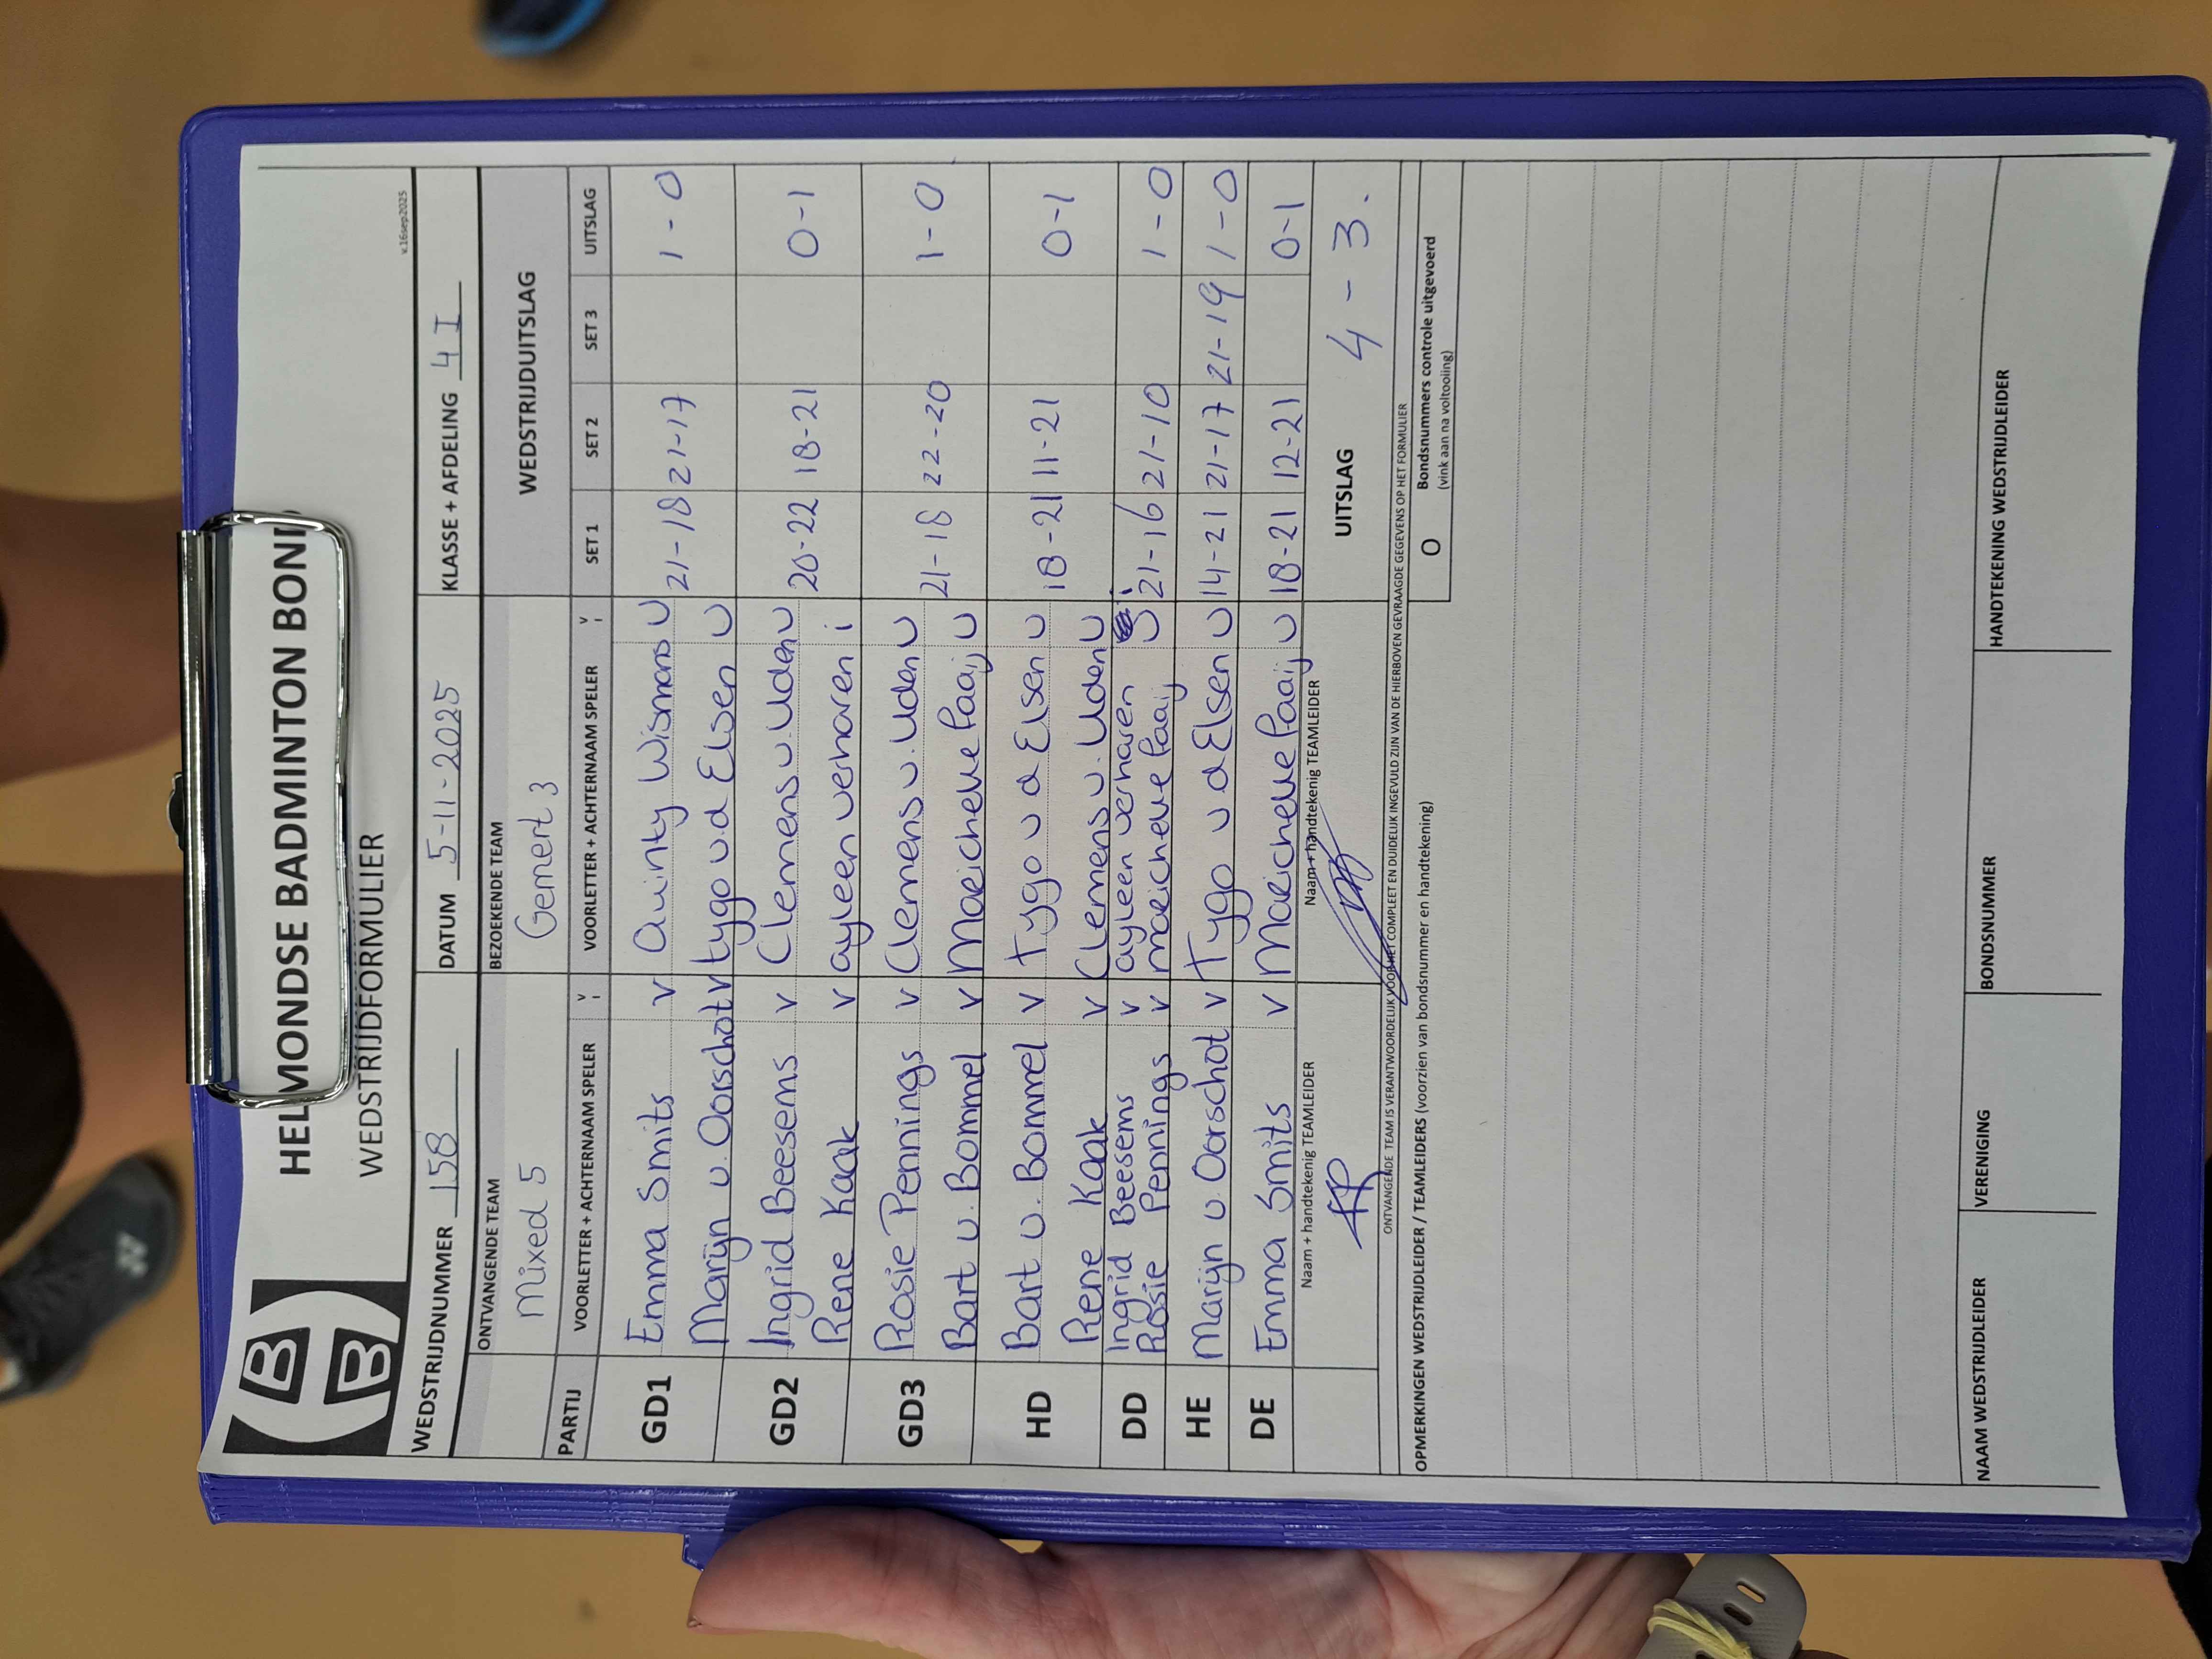 HELMONDSE BADMINTON BON
WEDSTRIJDFORMULIER
v.16sep2025
WEDSTRIJDNUMMER 158 DATUM 5-11-2025 KLASSE + AFDELING 4 I
ONTVANGENDE TEAM BEZOEKENDE TEAM WEDSTRIJDUITSLAG
Mixed 5 Gemert 3
PARTIJ VOORLETTER + ACHTERNAAM SPELER V/I VOORLETTER + ACHTERNAAM SPELER V/I SET 1 SET 2 SET 3 UITSLAG
GD1 Emma Smits v Quinty Wismans v 21-18 21-17 1-0
Marijn v. Oorschot v tygo v.d Elsen v
GD2 Ingrid Beesems v Clemens v. Uden v 20-22 18-21 0-1
Rene Kaak v ayleen verharen i
GD3 Rosie Pennings v Clemens v. Uden v 21-18 22-20 1-0
Bart v. Bommel v Marichelle Paaij v
HD Bart v. Bommel v Tygo v d Elsen v 18-21 11-21 0-1
Rene Kaak v Clemens v. Uden v
DD Ingrid Beesems v ayleen verharen i 21-16 21-10 1-0
Rosie Pennings v marichelle Paaij v
HE Marijn v Oorschot v Tygo v d Elsen v 14-21 21-17 21-19 1-0
DE Emma Smits v Marichelle Paaij v 18-21 12-21 0-1
Naam + handtekenig TEAMLEIDER Naam + handtekenig TEAMLEIDER UITSLAG 4 - 3.
ONTVANGENDE TEAM IS VERANTWOORDELIJK VOOR HET COMPLEET EN DUIDELIJK INGEVULD ZIJN VAN DE HIERBOVEN GEVRAAGDE GEGEVENS OP HET FORMULIER
O Bondsnummers controle uitgevoerd
(vink aan na voltooling)
OPMERKINGEN WEDSTRIJDLEIDER / TEAMLEIDERS (voorzien van bondsnummer en handtekening)
NAAM WEDSTRIJDLEIDER VERENIGING BONDSNUMMER HANDTEKENING WEDSTRIJDLEIDER